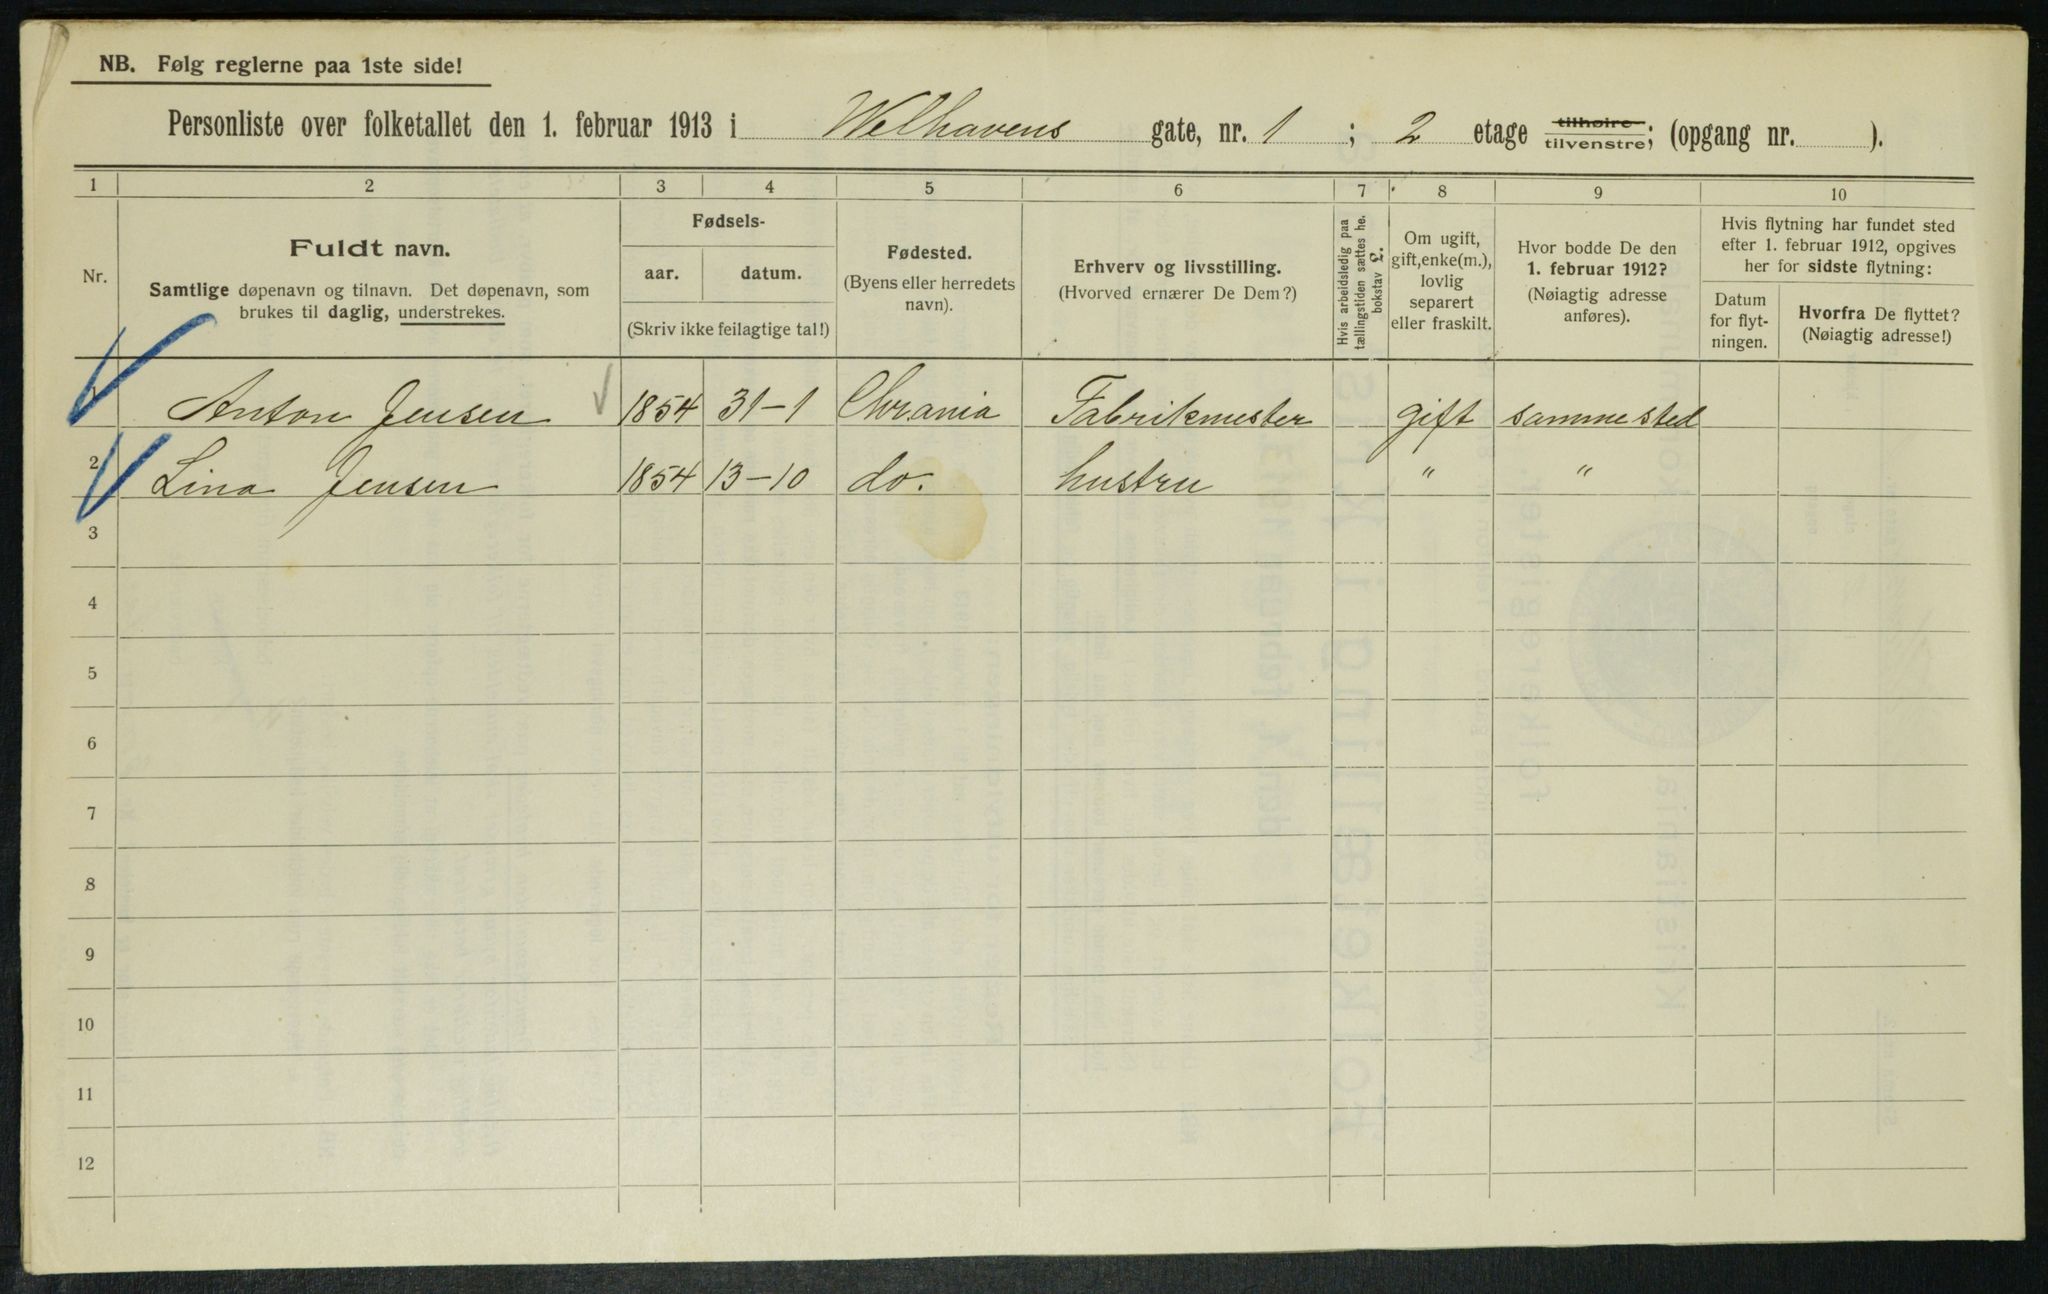 NB. Følg reglerne paa 1ste side!
Personliste over folketallet den 1. februar 1913 i Welhavens gate, nr. 1 ; 2 etage tilhøire tilvenstre; (opgang nr. ).
1 2 3 4 5 6 7 8 9 10
Nr.
Fuldt navn.
Samtlige døpenavn og tilnavn. Det døpenavn, som
brukes til daglig, understrekes.
Fødsels-
aar. datum.
(Skriv ikke feilagtige tal!)
Fødested.
(Byens eller herredets
navn).
Erhverv og livsstilling.
(Hvorved ernærer De Dem?)
Hvis arbeidsledig paa
tællingstiden sættes he.
bokstav £.
Om ugift,
gift, enke(m.),
lovlig
separert
eller fraskilt.
Hvor bodde De den
1. februar 1912?
(Nøiagtig adresse
anføres).
Hvis flytning har fundet sted
efter 1. februar 1912, opgives
her for sidste flytning:
Datum
for flyt-
ningen.
Hvorfra De flyttet?
(Nøiagtig adresse!)
1 Anton Jensen 1854 31-1 Chrania Fabrikmester gift sammested
2 Lina Jensen 1854 13-10 do. hustru " "
3
4
5
6
7
8
9
10
11
12